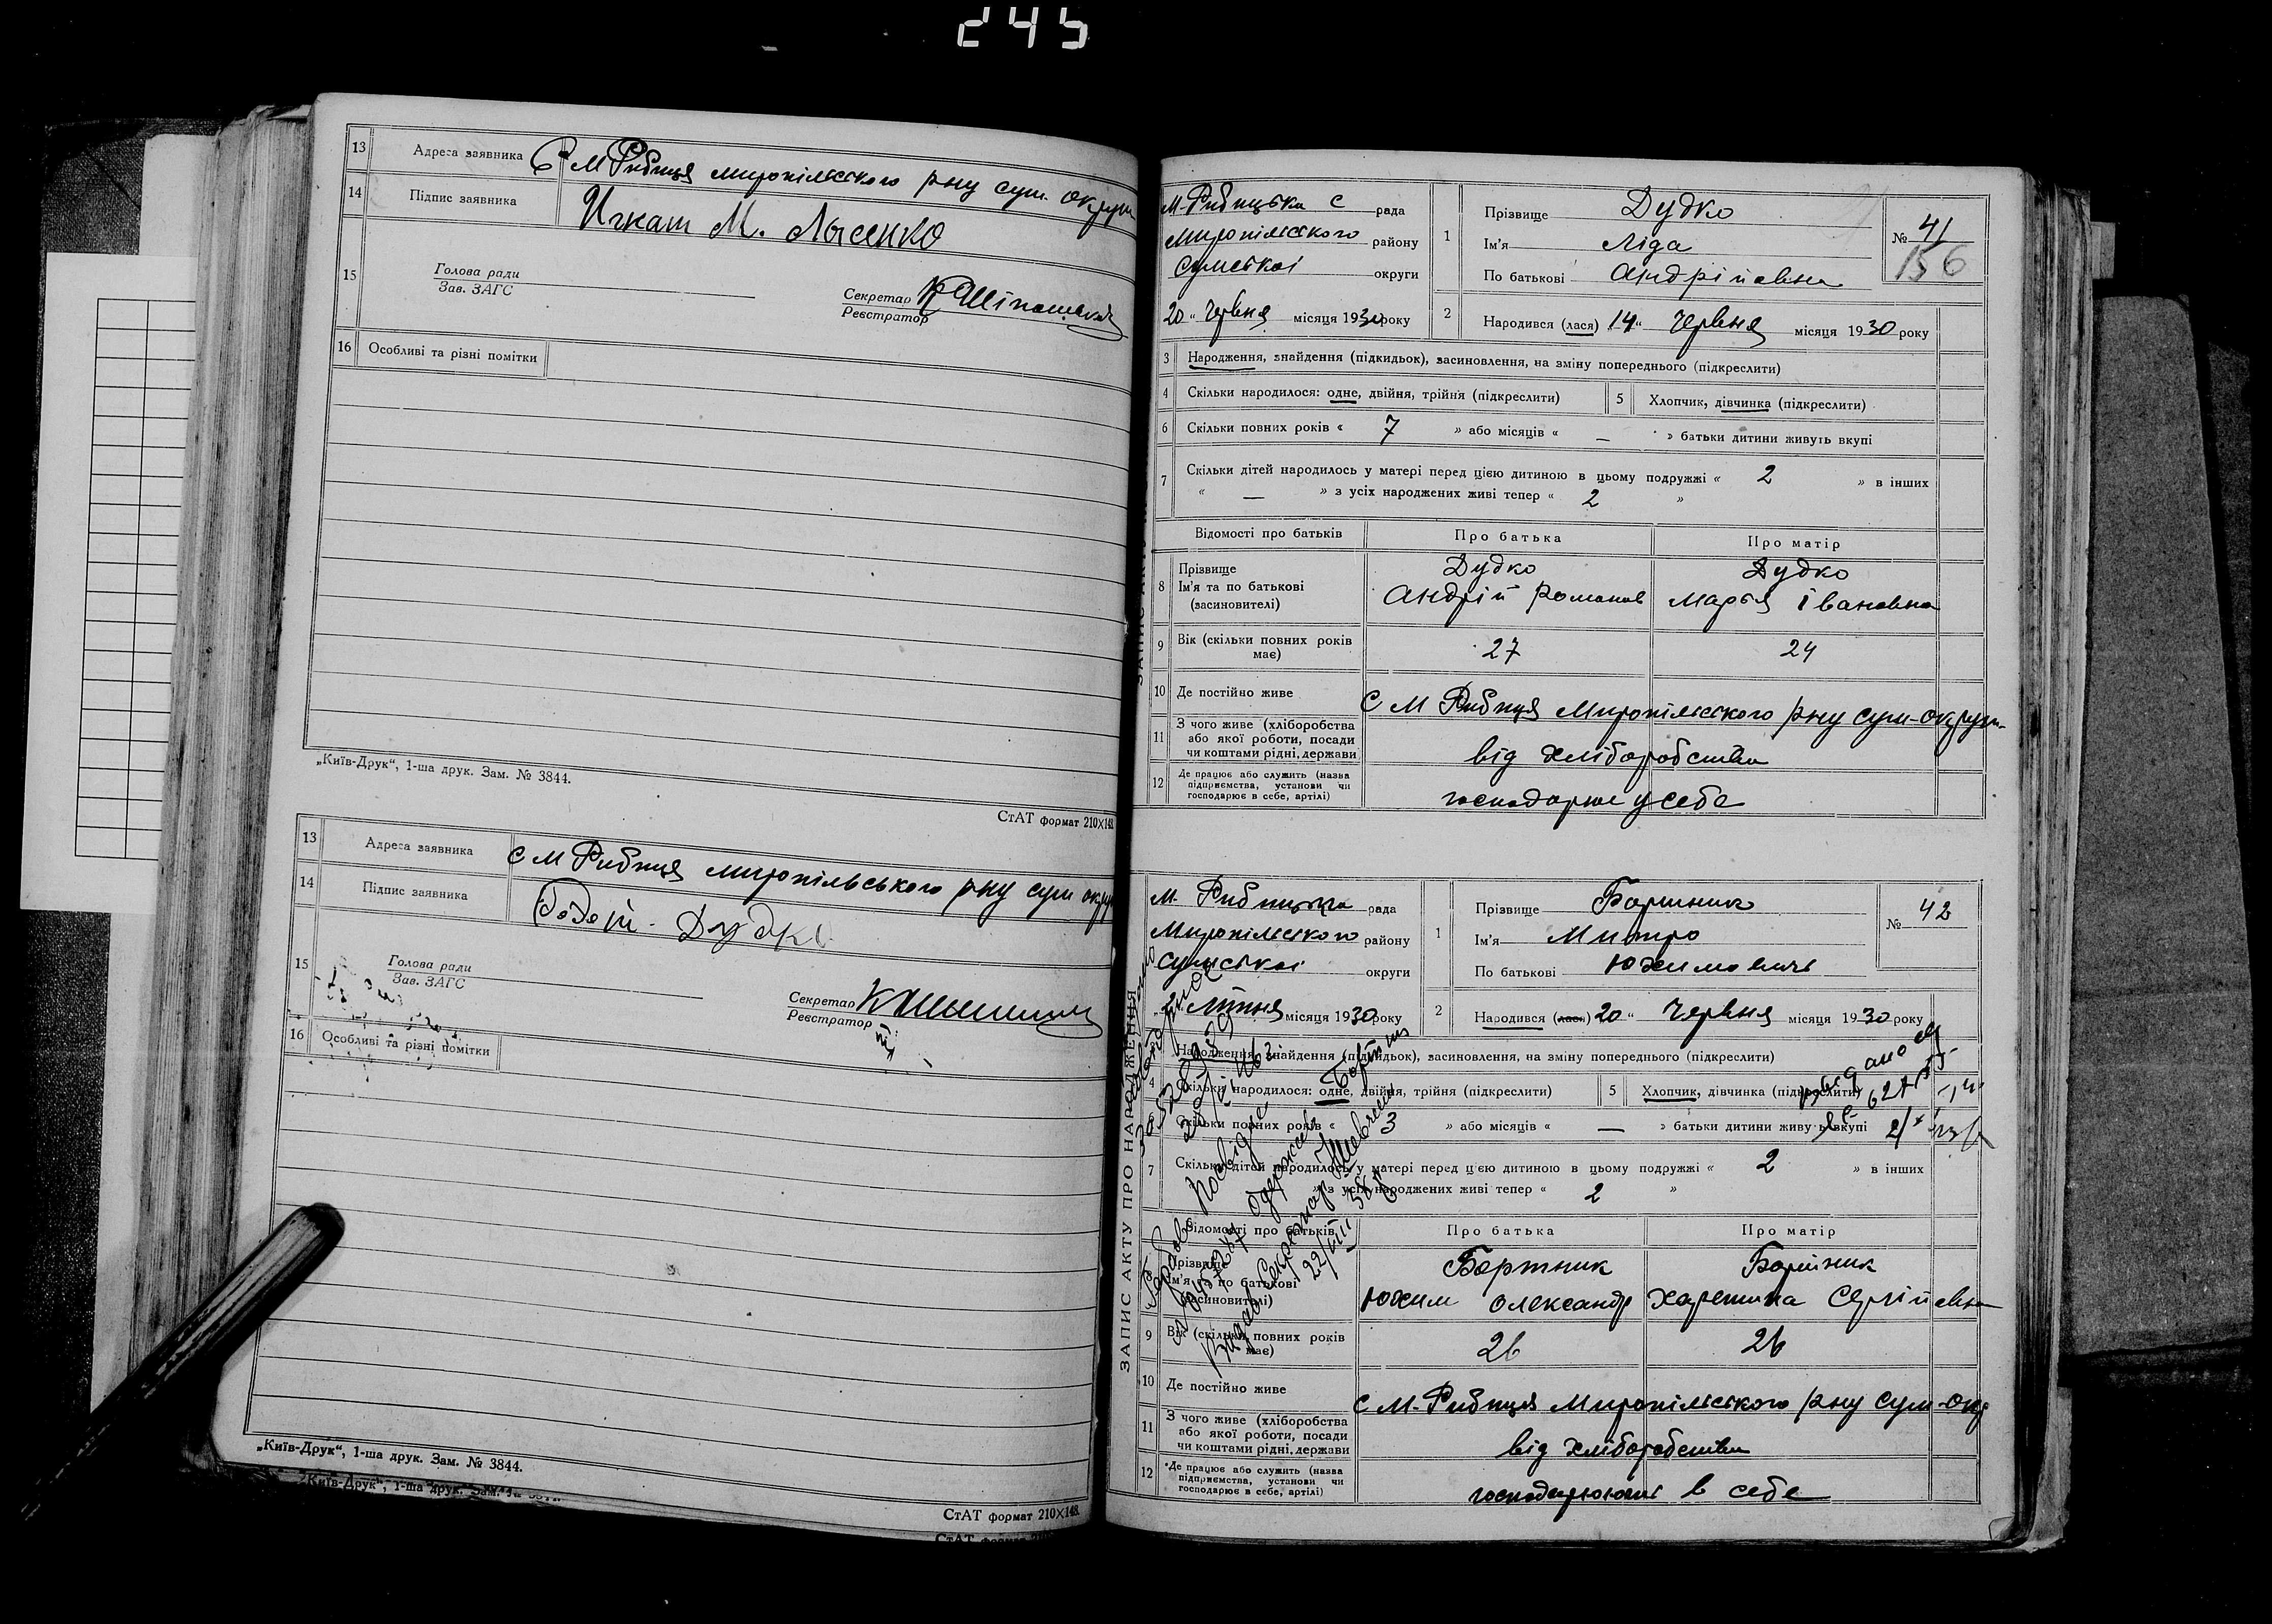 245
13 Адреса заявника С М Рибиця миропільского рну сум. округи
14 Підпис заявника Игнат М. Лысенко
15 Голова ради
Зав. ЗАГС
Секретар
Реєстратор
16 Особливі та різні помітки
„Київ-Друк“, 1-ша друк. Зам. № 3844.
СтАТ формат 210×148.
13 Адреса заявника с М Рибиця миропільського рну сум округи
14 Підпис заявника Дудко
15 Голова ради
Зав. ЗАГС
Секретар
Реєстратор
16 Особливі та різні помітки
„Київ-Друк“, 1-ша друк. Зам. № 3844.
СтАТ формат 210×148.
М-Рибицька с рада
Миропільского району
Сумської округи
20 „ Червня місяця 1930 року
1 Прізвище Дудко
Ім'я Ліда
По батькові Андрійовна
№ 41
156
2 Народився (лася) 14 „ Червня місяця 1930 року
3 Народження, знайдення (підкидьок), засиновлення, на зміну попереднього (підкреслити)
4 Скільки народилося: одне, двійня, трійня (підкреслити) 5 Хлопчик, дівчинка (підкреслити)
6 Скільки повних років « 7 » або місяців « — » батьки дитини живуть вкупі
7 Скільки дітей народилось у матері перед цією дитиною в цьому подружжі « 2 » в інших
« — » з усіх народжених живі тепер « 2 »
Відомості про батьків Про батька Про матір
8 Прізвище Дудко Дудко
Ім'я та по батькові Андрій Романов Марья Івановна
(засиновителі)
9 Вік (скільки повних років має) 27 24
10 Де постійно живе С М Рибиця Миропільского рну сум-округи
11 З чого живе (хліборобства
або якої роботи, посади
чи коштами рідні, держави від хліборобства
12 Де працює або служить (назва
підприємства, установи чи
господарює в себе, артілі) господарює у себе
ЗАПИС АКТУ ПРО НАРОДЖЕННЯ
М. Рибицька рада
Миропільского району
Сумської округи
2 „ Липня місяця 1930 року
1 Прізвище Бортник
Ім'я Митро
По батькові Юхимович
№ 42
2 Народився (лася) 20 „ Червня місяця 1930 року
Народження, знайдення (підкидьок), засиновлення, на зміну попереднього (підкреслити)
4 Скільки народилося: одне, двійня, трійня (підкреслити) 5 Хлопчик, дівчинка (підкреслити)
Скільки повних років « 3 » або місяців « — » батьки дитини живуть вкупі
7 Скільки дітей народилось у матері перед цією дитиною в цьому подружжі « 2 » в інших
» з усіх народжених живі тепер « 2 »
Відомості про батьків Про батька Про матір
Прізвище Бортник Бортник
Ім'я та по батькові Юхим Олександр Харетина Сергійовна
(засиновителі)
9 Вік (скільки повних років має) 26 26
10 Де постійно живе С М-Рибиця Миропільского рну Сум-окр
11 З чого живе (хліборобства
або якої роботи, посади
чи коштами рідні, держави від хліборобства
12 Де працює або служить (назва
підприємства, установи чи
господарює в себе, артілі) господарюють в себе
Видав Секретар Шевченко